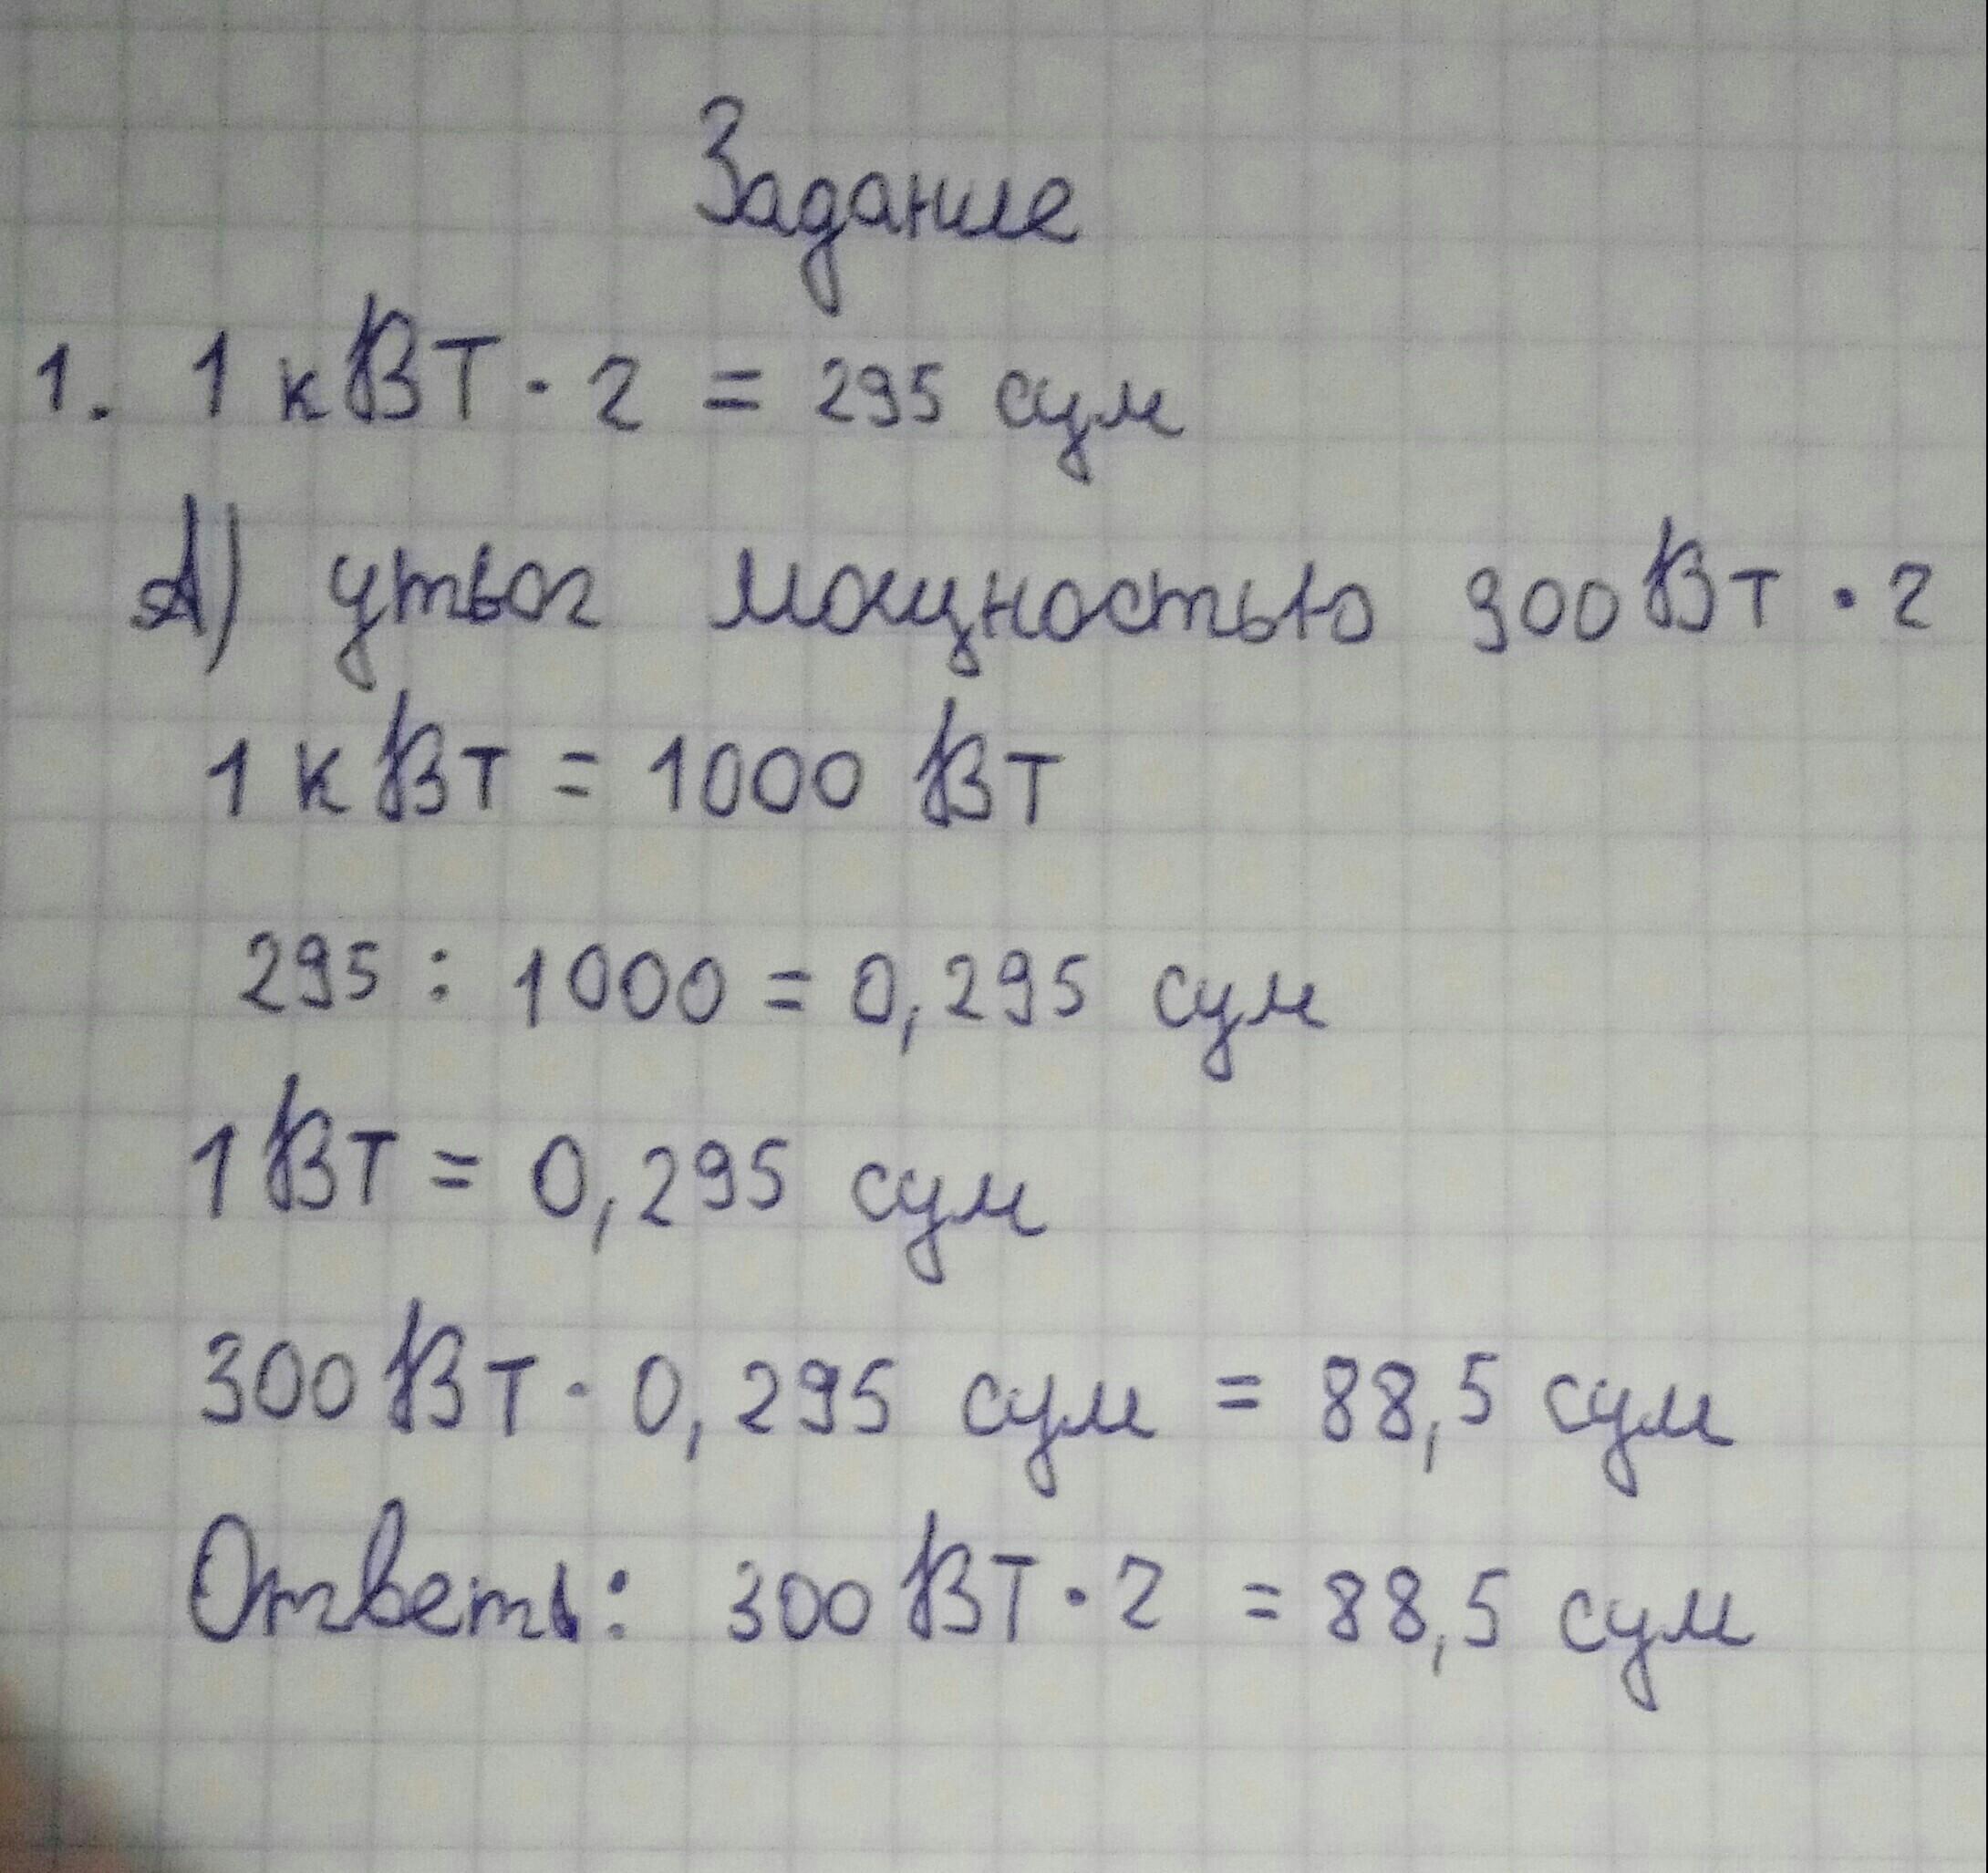 Задание
1. 1 кВТ · г = 295 сум
А) утьог мощностью 300Вт · г
1 кВт = 1000 Вт
295 : 1000 = 0,295 сум
1Вт = 0,295 сум
300Вт · 0,295 сум = 88,5 сум
Ответь: 300ВТ · г = 88,5 сум